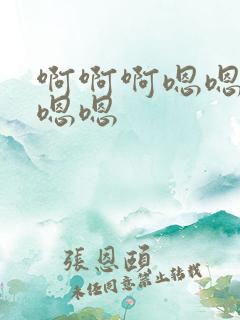 啊啊啊嗯嗯
嗯嗯
張恩頤
未經同意禁止轉載